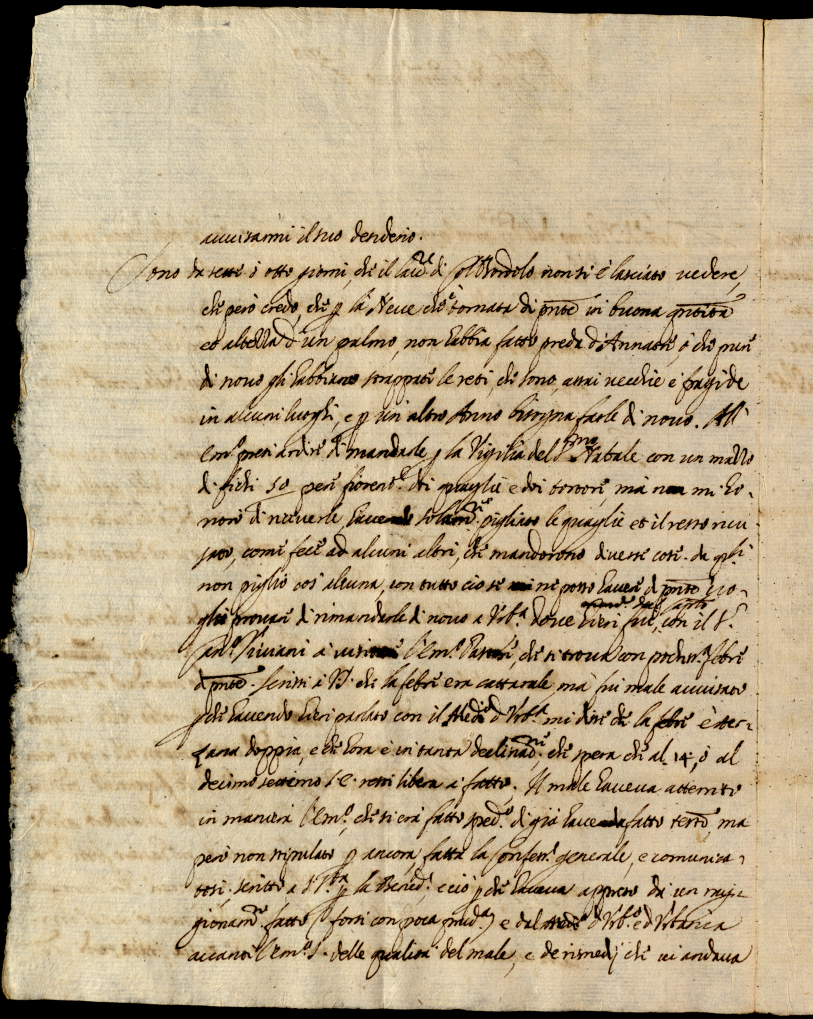 auuisarmi il suo desiderio.
Sono da sette ò otto giorni, che il di non si è lasciato uedere,
che però credo, che p la Neue ch'è tornata di pnte in buona qntità
et altezza d'un palmo, non habbia fatto preda d'Annatre, ò che pure
di nouo gli habbiano strappate le reti, che sono assai uecchie e fragide
in alcuni luoghi, e p un altro Anno bisogna farle di nouo. All'
em.o presi ardire di mandarle p la Vigilia del S.mo Natale con un mazzo
di fichi 50 pere fiorent.e dei quaglie e dei tortori, mà non mi ho-
norò di riceuerle, hauendo solam.te pigliato le quaglie et il resto ricu-
sato, come fece ad alcuni altri, che mandorono diuerse cose da qli
non pigliò cos'alcuna, con tutto ciò se ne posso hauere di pnte uo-
glio prouare di rimandarle di nouo a Urb.a doue hieri fui, con il S.r
Can.co à uisitare l'Em.o che si trova con febre
di pnte. Scrissi à V.S. che la febre era cattarale mà fui male auuisato
p che hauendo hieri parlato con il Medico d'Urb.a mi disse che la febre è ter-
zana doppia, e che hora è in tanta declinaz.ne, che spera che al 14, ò al
decimo settimo S.E. resti libera à fatto. Il male haueua atterrito
in maniera l'Em.o, che si era fatto di già hauea fatto test.o, ma
però non stipulato p ancora, fatta la Confess.e generale, e comunica-
tosi, scritto a S. S.tà p la Bened.e e ciò p che haueua appreso da un ragi-
gionam.to fatto (forsi con poca prud.a) e dal Medico d'Urb.o e d'Urbania
auanti l'Em.o S. delle qualità del male, e de rimedij che ui andaua